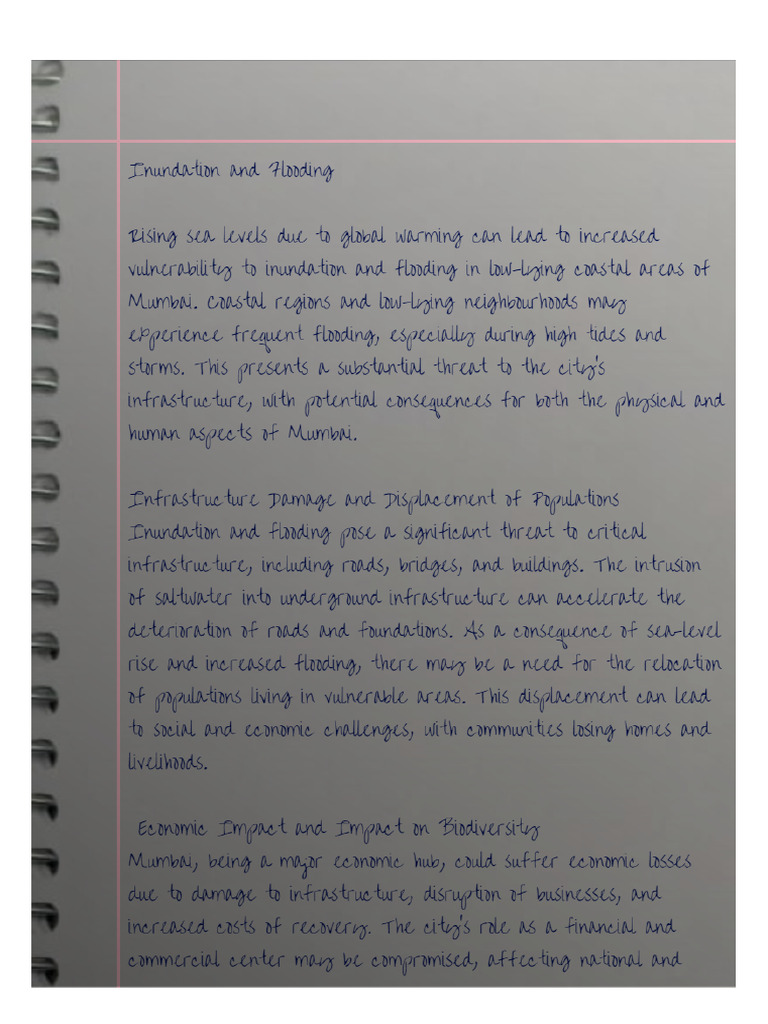 Inundation and Flooding
Rising sea levels due to global warming can lead to increased
vulnerability to inundation and flooding in low-lying coastal areas of
Mumbai. Coastal regions and low-lying neighbourhoods may
experience frequent flooding, especially during high tides and
storms. This presents a substantial threat to the city's
infrastructure, with potential consequences for both the physical and
human aspects of Mumbai.
Infrastructure Damage and Displacement of Populations
Inundation and flooding pose a significant threat to critical
infrastructure, including roads, bridges, and buildings. The intrusion
of saltwater into underground infrastructure can accelerate the
deterioration of roads and foundations. As a consequence of sea-level
rise and increased flooding, there may be a need for the relocation
of populations living in vulnerable areas. This displacement can lead
to social and economic challenges, with communities losing homes and
livelihoods.
Economic Impact and Impact on Biodiversity
Mumbai, being a major economic hub, could suffer economic losses
due to damage to infrastructure, disruption of businesses, and
increased costs of recovery. The city's role as a financial and
commercial center may be compromised, affecting national and